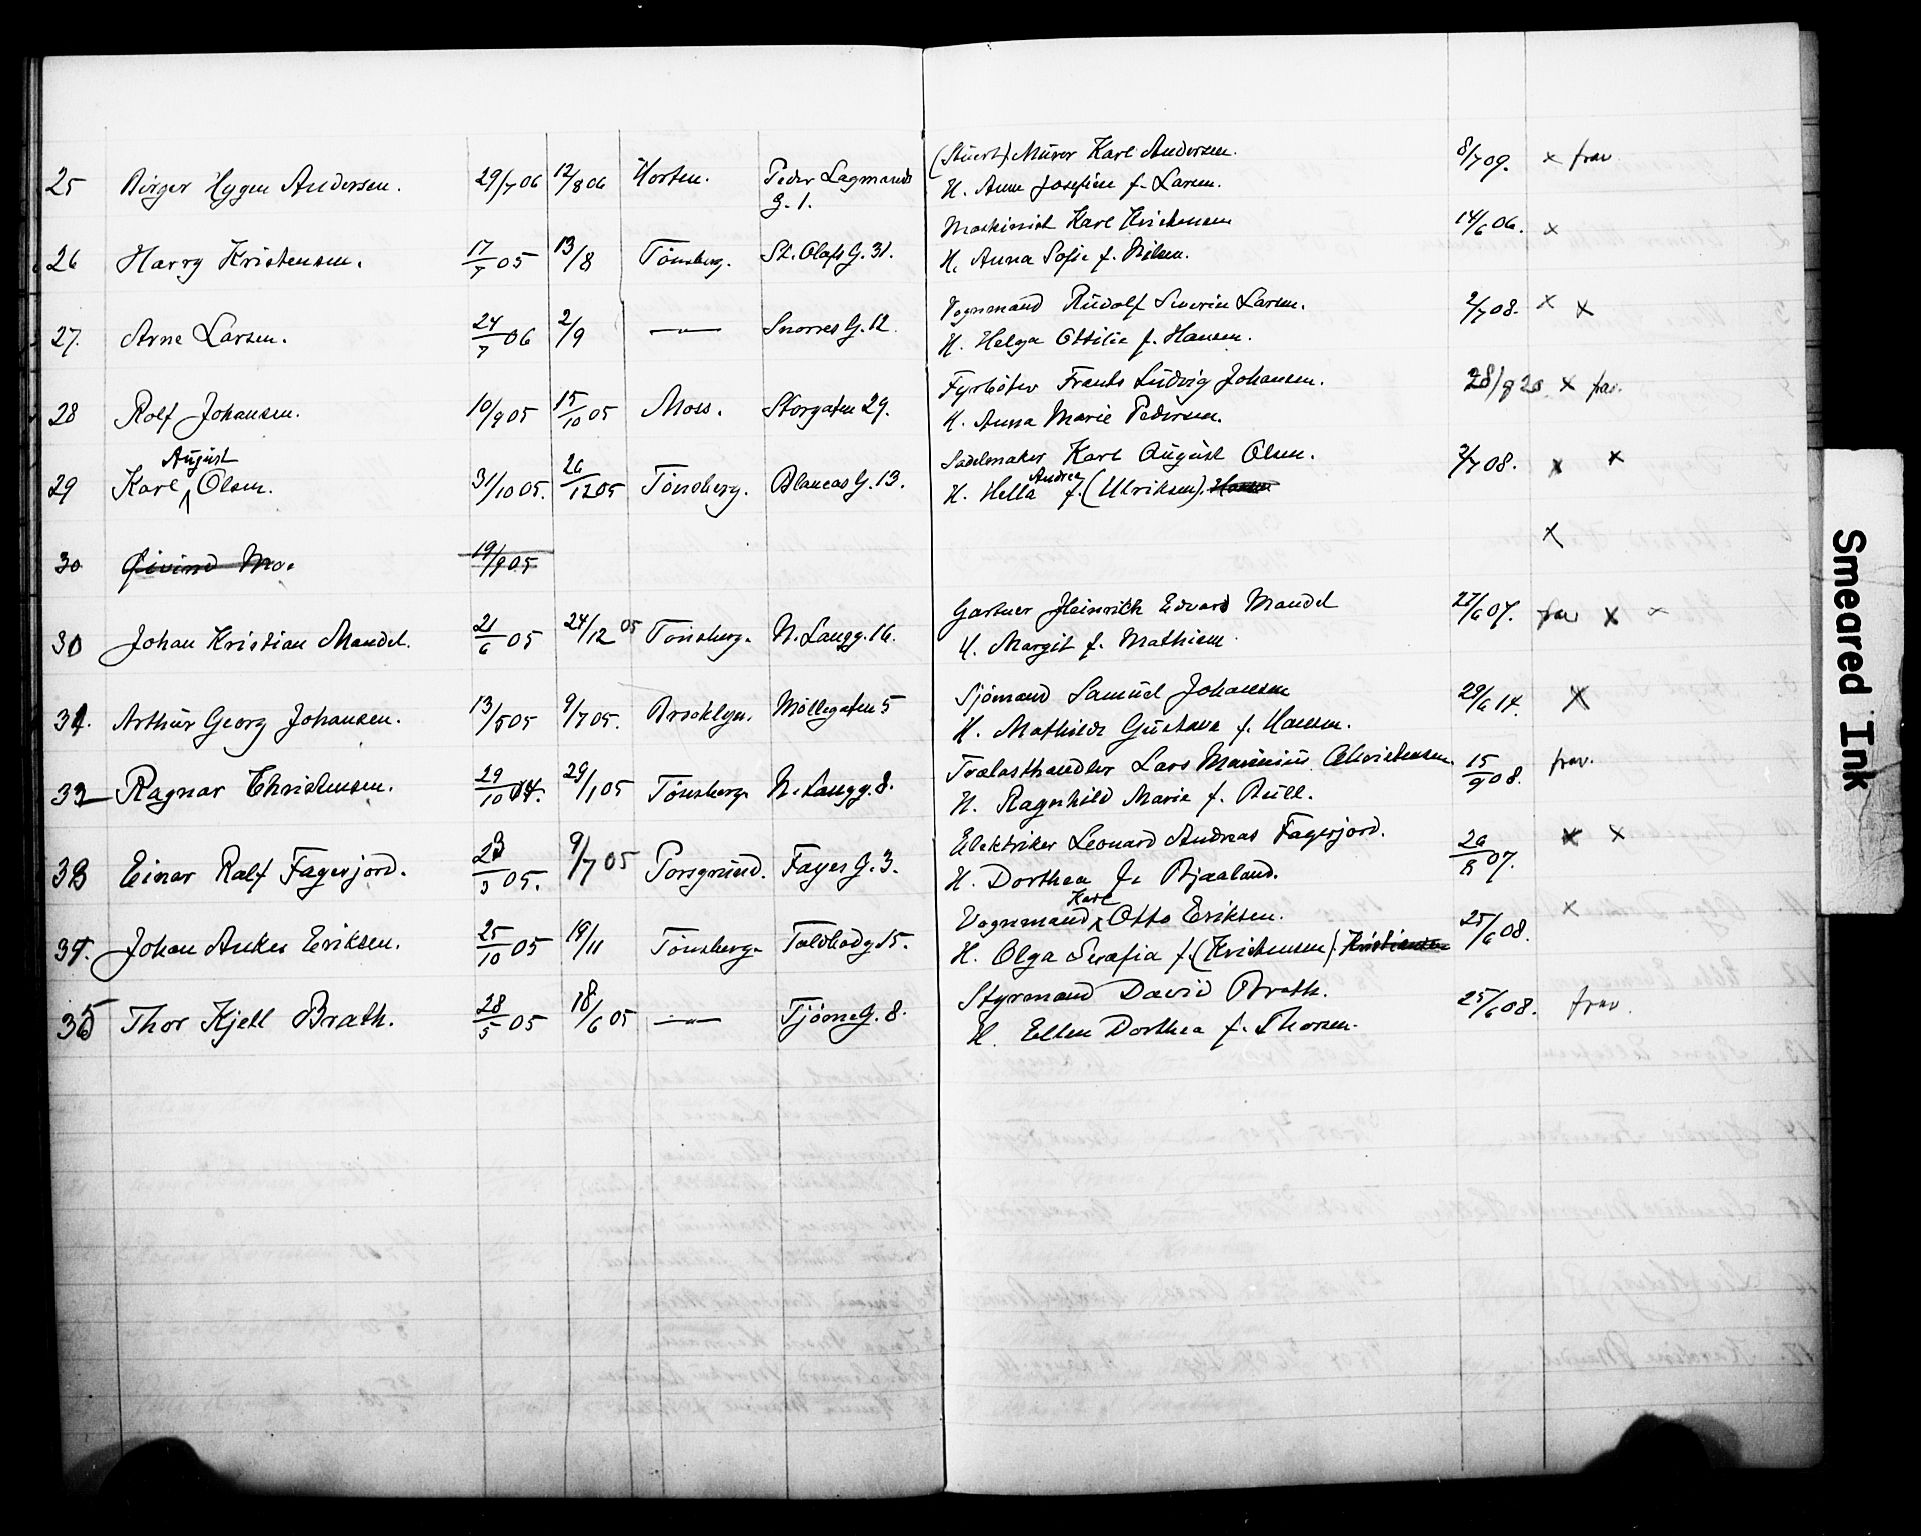 (Stuert) Murer Karl Andersen.
25 Birger Hygen Andersen. 29/7 06 12/8 06 Horten. Peder Lagmands H. Anna Josefine f. Larsen. 8/7 09. x frav.
G. 1.
Maskinist Karl Kristensen 14/6 06. x
26 Harry Kristensen. 17/7 05 13/8 Tönsberg. St. Olafs G. 31. H. Anna Sofie f. Nilsen.
Vognmand Rudolf Severin Larsen. 2/7 08. x x
27. Arne Larsen. 24/7 06 2/9 —"— Snorres G. 12. H. Helga Ottilie f. Hansen.
Fyrböter Frants Ludvig Johansen. x frav.
28 Rolf Johansen. 10/9 05 15/10 05 Moss. Storgaten 29. H. Anna Marie Pedersen.
August
Sadelmaker Karl August Olsen. 2/7 08. x x
Andrea
29 Karl Olsen. 31/10 05. 26/12 05 Tönsberg. Blancas G. 13. H. Hella f. (Ulriksen).
x
30 Øivind Mo. 19/9 05
Gartner Heinrich Edvard Mandel 27/6 07. frav x x
30 Johan Kristian Mandel. 21/6 05 24/12 05 Tönsberg. N. Langg. 16. H. Margit f. Mathisen.
Sjömand Samuel Johansen 29/6 17. x
31. Arthur Georg Johansen. 13/5 05 9/7 05. Brooklyn. Möllegaten 5 H. Mathilde Gustava f. Hansen.
Trælasthandler Lars Marinius Christensen. 15/9 08. frav.
32 Ragnar Christensen. 29/10 04. 29/1 05 Tönsberg. N. Langg. 8. H. Ragnhild Marie f. Bull.
Elektriker Leonard Andreas Fagerjord. 26/8 07. x x
33 Einar Ralf Fagerjord. 23/3 05. 9/7 05 Porsgrund. Fayes G. 3. H. Dorthea f. Bjaaland.
Karl
Vognmand Otto Eriksen. 25/6 08. x
34. Johan Anker Eriksen. 25/10 05 19/11 Tönsberg. Toldbodg 15. H. Olga Serafia f. (Kristensen). Kristiansen
Styrmand David Brath. 25/6 08. frav.
35 Thor Kjell Brath. 28/5 05 18/6 05 —"— Tjöme G. 8. H. Ellen Dorthea f. Thorsen.
Smeared Ink